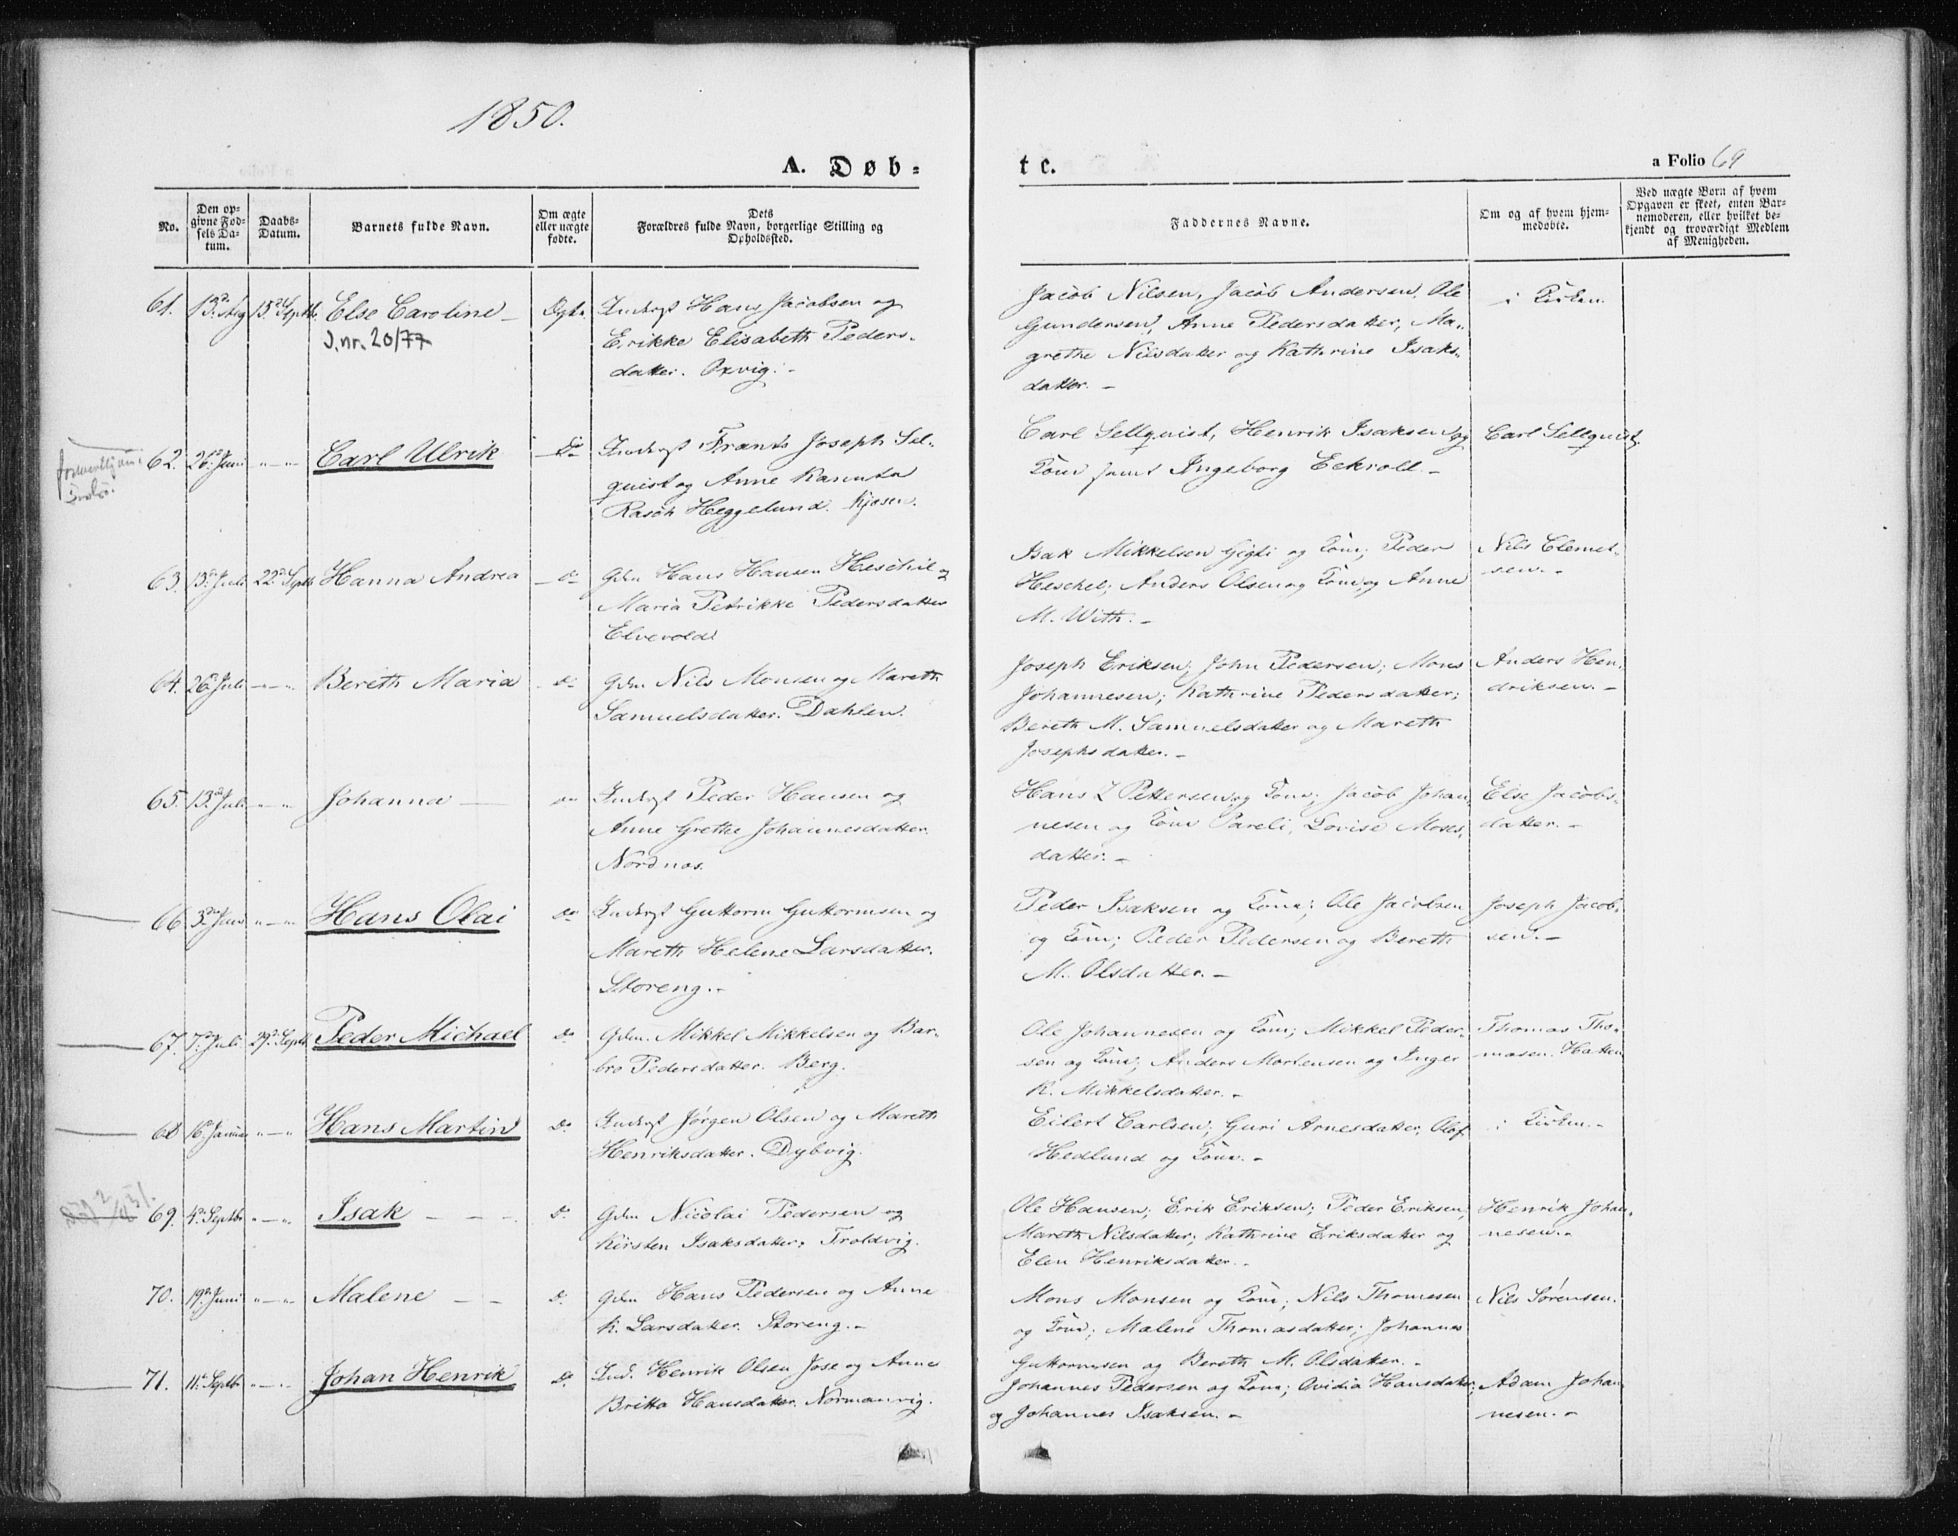 1850.
A. Døb-
tc.
a Folio 69
No.
Den op-
givne Fød-
sels Da-
tum.
Daabs-
Datum.
Barnets fulde Navn.
Om ægte
eller uægte
fødte.
Dets
Forældres fulde Navn, borgerlige Stilling og
Opholdssted.
Faddernes Navne.
Om og af hvem hjem-
medøbte.
Ved uægte Born af hvem
Opgaven er skeet, enten Bar-
nemoderen, eller hvilket be-
kjendt og troværdigt Medlem
af Menigheden.
61. 13de Aug 15de Septb. Else Caroline
J.nr. 20/77
Indergst Hans Jacobsen og
Erikke Elisabeth Peders-
datter. Oxvig.
Jacob Nilsen, Jacob Andersen, Ole
Gundersen, Anne Pedersdatter, Ma-
grethe Nilsdatter og Kathrine Isaks-
datter.
i Kirken.
62. 26de Juni Carl Ulrik Do
Indergst Frants Joseph Sel-
quist og Anne Kanuta
Rasch Heggelund. Kjosen.
Carl Sellquist, Henrik Isaksen og
Kone samt Ingeborg Eckroll
Carl Sellquist
63. 13de Juli 22de Septb Hanna Andrea do
Gdm Hans Hansen Heschel og
Maria Petrikke Pedersdatter
Elvevold.
Isak Mikkelsen Gigti og Kone; Peder
Heschel; Anders Olsen og Kone og Anne
M. With.
Nils Clemet-
sen.
64. 26de Juli Bereth Maria do
Gdm Nils Monsen og Mareth
Samuelsdatter. Dahlen.
Joseph Eriksen; John Pedersen; Mons
Johannesen; Kathrine Pedersdatter;
Bereth M. Samuelsdatter og Mareth
Josephsdatter.
Anders Hen-
driksen.
65. 13de Juli Johanna do
Indergst Peder Hansen og
Anne Grethe Johannesdatter.
Nordnes.
Hans Z Pettersen og Kone; Jacob Johan-
nesen og Kone Pareli, Lovise Moses-
datter.
Else Jacobs-
datter.
66. 3de Juni Hans Olai do
Indergst Guttorm Guttormsen og
Mareth Helene Larsdatter.
Storeng.
Peder Isaksen og Kone; Ole Jacobsen
og Kone; Peder Pedersen og Bereth
M. Olsdatter.
Joseph Jacob-
sen.
67. 7de Juli 29de Septb Peder Michael do
Gdm. Mikkel Mikkelsen og Bar-
bro Pedersdatter. Berg.
Ole Johannesen og Kone; Mikkel Peder-
sen og Kone; Anders Mortensen og Inger
K. Mikkelsdatter.
Thomas Tho-
masen. Hatten
68 16de Januar Hans Martin Do
Indergst Jørgen Olsen og Mareth
Henriksdatter. Dybvig.
Eilert Carlsen; Guri Arnesdatter, Olof
Hedlund og Kone.
i Kirken.
69. 4de Septbr Isak d.
Gdm Nicolai Pedersen og
Kirsten Isaksdatter; Troldvig.
Ole Hansen; Erik Eriksen; Peder Eriksen;
Mareth Nilsdatter; Kathrine Eriksdatter og
Elen Henriksdatter.
Henrik Johan-
nesen.
70. 19de Juni Malene d.
Gdm Hans Pedersen og Anne
K. Larsdatter. Storeng.
Mons Monsen og Kone; Nils Thomesen
og Kone; Malene Thomasdatter; Johannes
Guttormsen og Bereth M. Olsdatter.
Nils Sørensen.
71. 11te Septbr Johan Henrik d.
Ind. Henrik Olsen Jose og Anne
Britta Hansdatter. Normanvig.
Johannes Pedersen og Kone; Ovidia Hansdatter;
og Johannes Isaksen.
Adam Johan-
nesen.